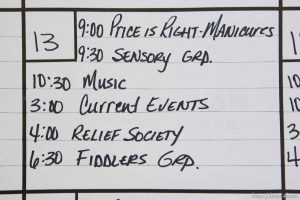 13
9:00 PRICE IS RIGHT-MANICURES
9:30 SENSORY GRP.
10:30 MUSIC
3:00 CURRENT EVENTS
4:00 RELIEF SOCIETY
6:30 FIDDLERS GRP.
10
1
4